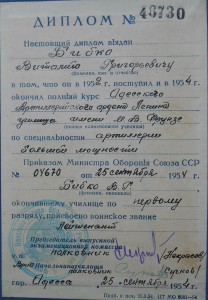 ДИПЛОМ № 40730
Настоящий диплом выдан
Бибко
Виталию Григорьевичу
(фамилия, имя и отчество)
в том, что он в 1951 г. поступил и в 1954 г.
окончил полный курс Одесского
Артиллерийского ордена Ленина
училища имени М. В. Фрунзе
по специальности артиллерии
большой мощности
Приказом Министра Обороны Союза ССР
№ 04670 от 25 сентября 1954 г.
Бибко В. Г.
окончившему училище по первому
разряду, присвоено воинское звание
Лейтенант
Председатель выпускной
экзаменационной комиссии
полковник
Начальник училища
полковник
гор. Одесса 25 сентября 1954 г.